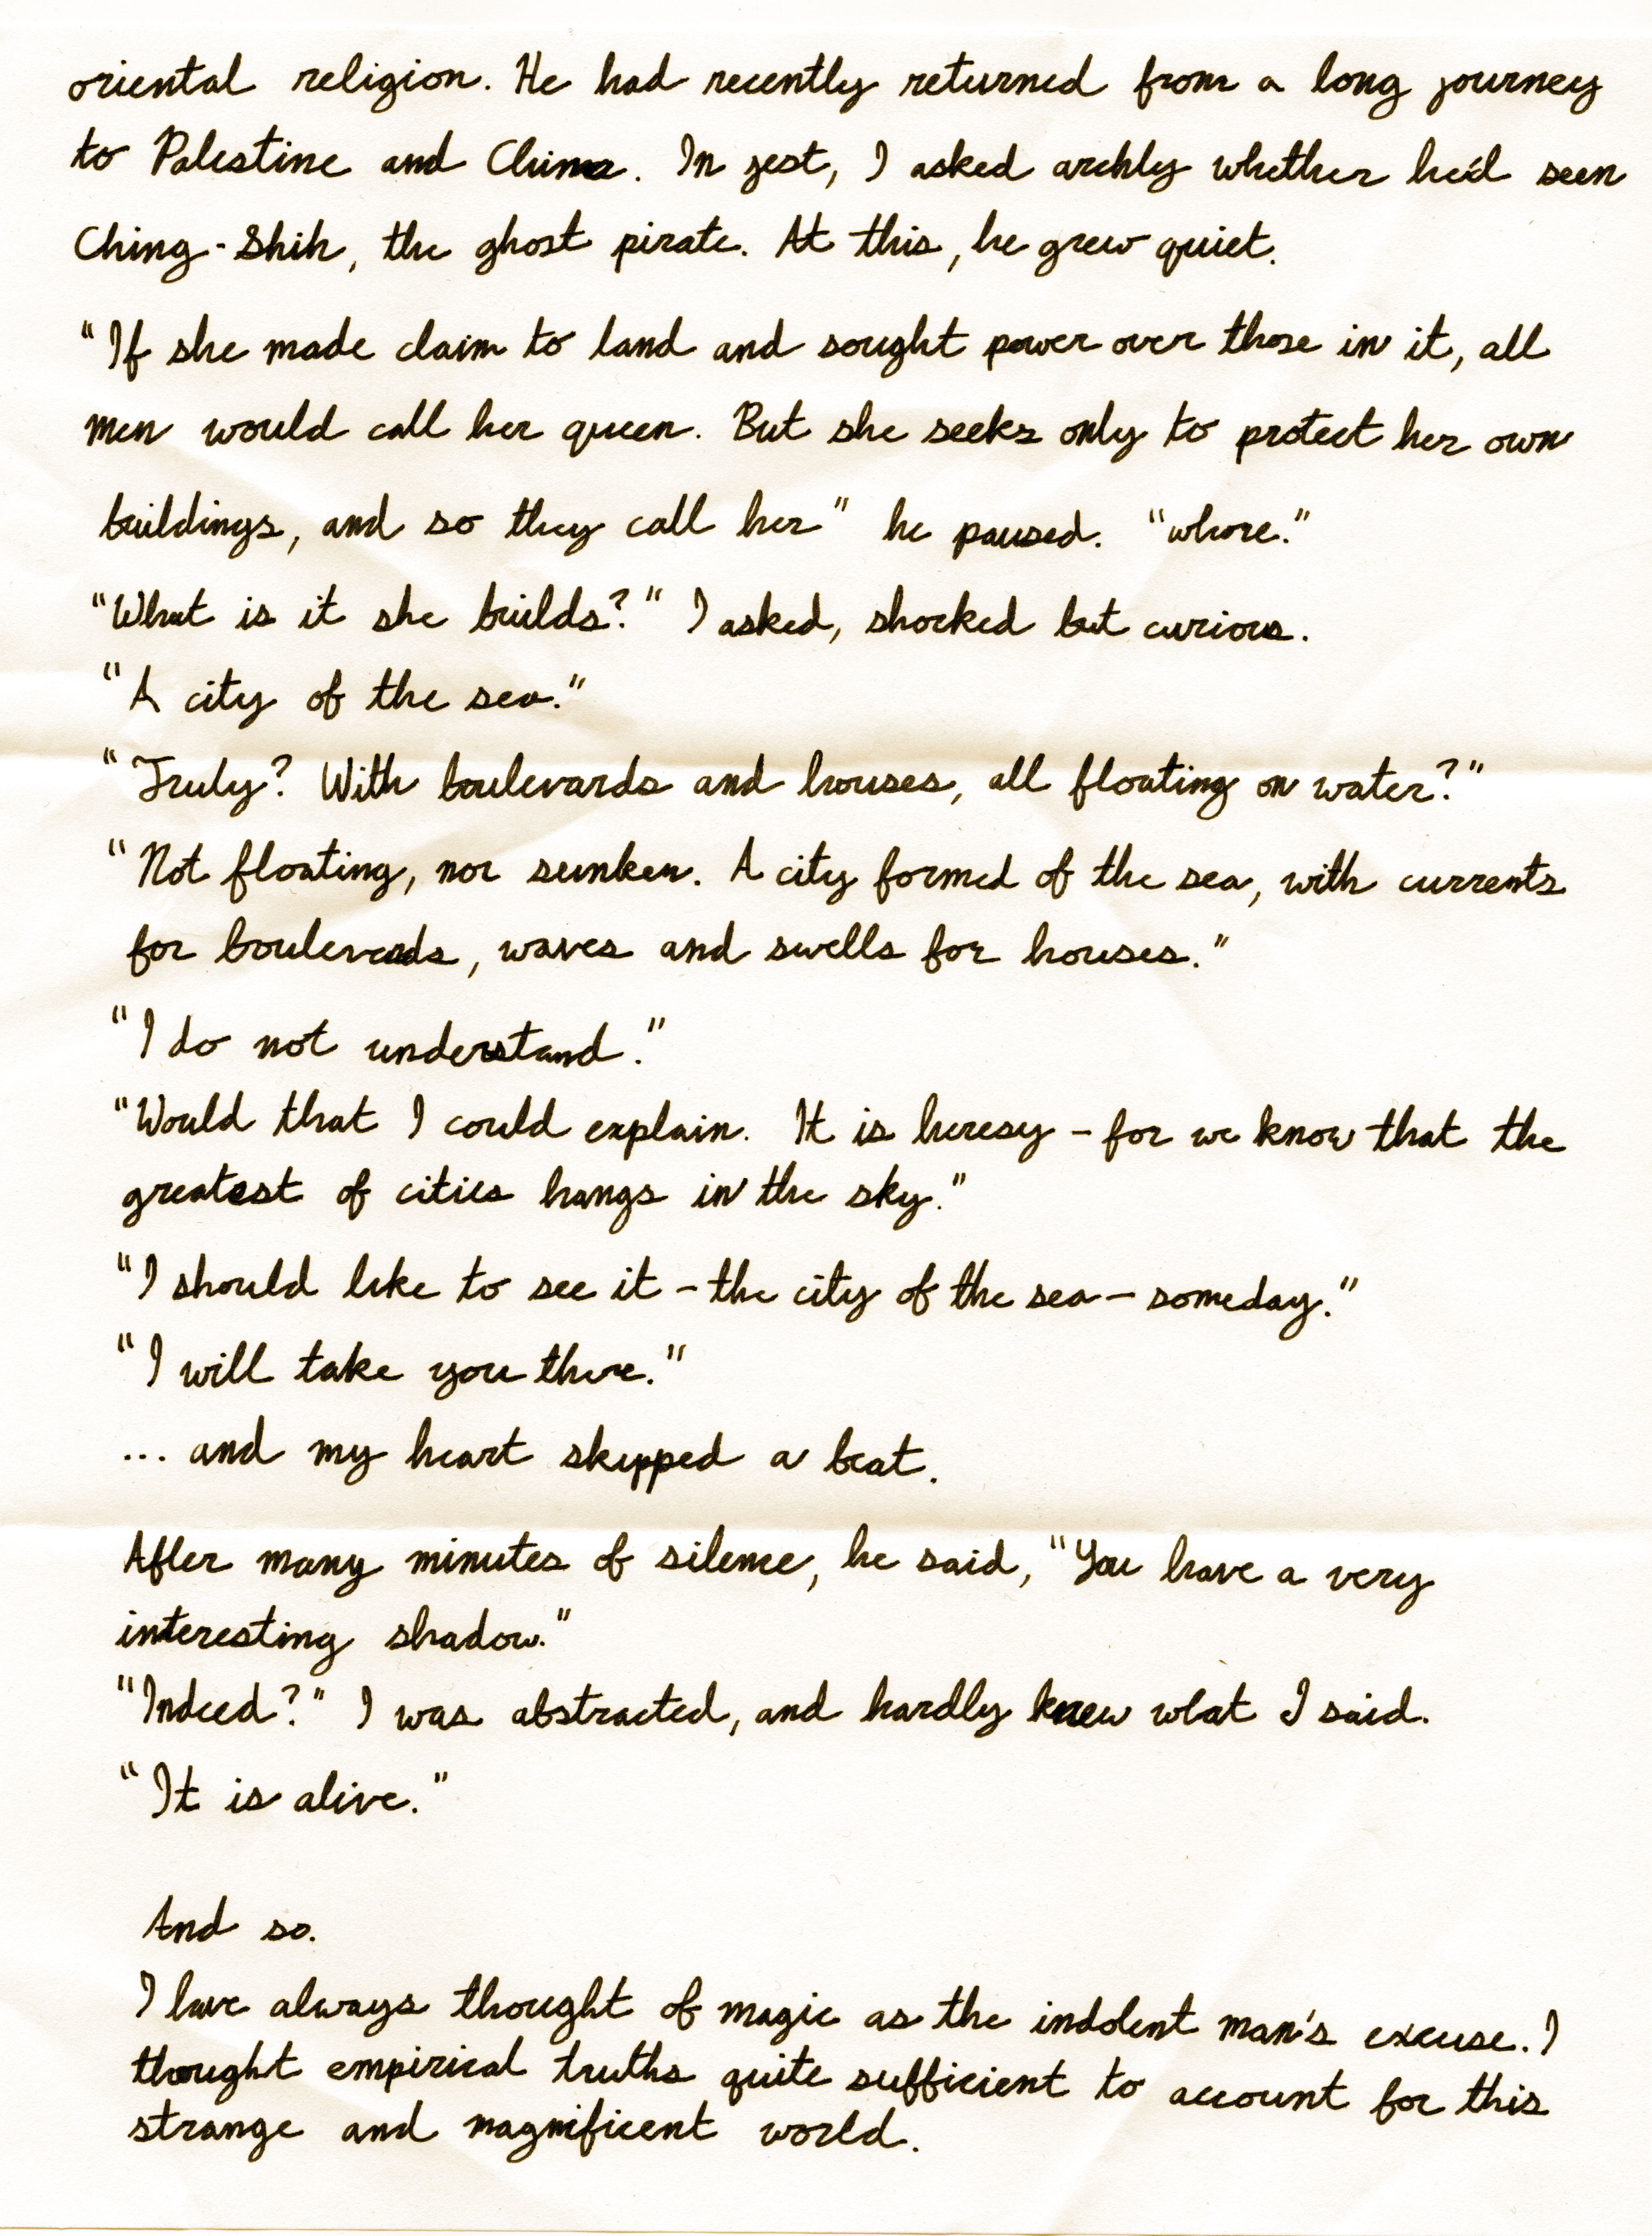 oriental religion. He had recently returned from a long journey
to Palestine and China. In jest, I asked archly whether he'd seen
Ching-Shih, the ghost pirate. At this, he grew quiet.
"If she made claim to land and sought power over those in it, all
men would call her queen. But she seeks only to protect her own
buildings, and so they call her" he paused. "whore."
"What is it she builds?" I asked, shocked but curious.
"A city of the sea."
"Truly? With boulevards and houses, all floating on water?"
"Not floating, nor sunken. A city formed of the sea, with currents
for boulevards, waves and swells for houses."
"I do not understand."
"Would that I could explain. It is heresy - for we know that the
greatest of cities hangs in the sky."
"I should like to see it - the city of the sea - someday."
"I will take you there."
... and my heart skipped a beat.
After many minutes of silence, he said, "You have a very
interesting shadow."
"Indeed?" I was abstracted, and hardly knew what I said.
"It is alive."
And so.
I have always thought of magic as the indolent man's excuse. I
thought empirical truths quite sufficient to account for this
strange and magnificent world.